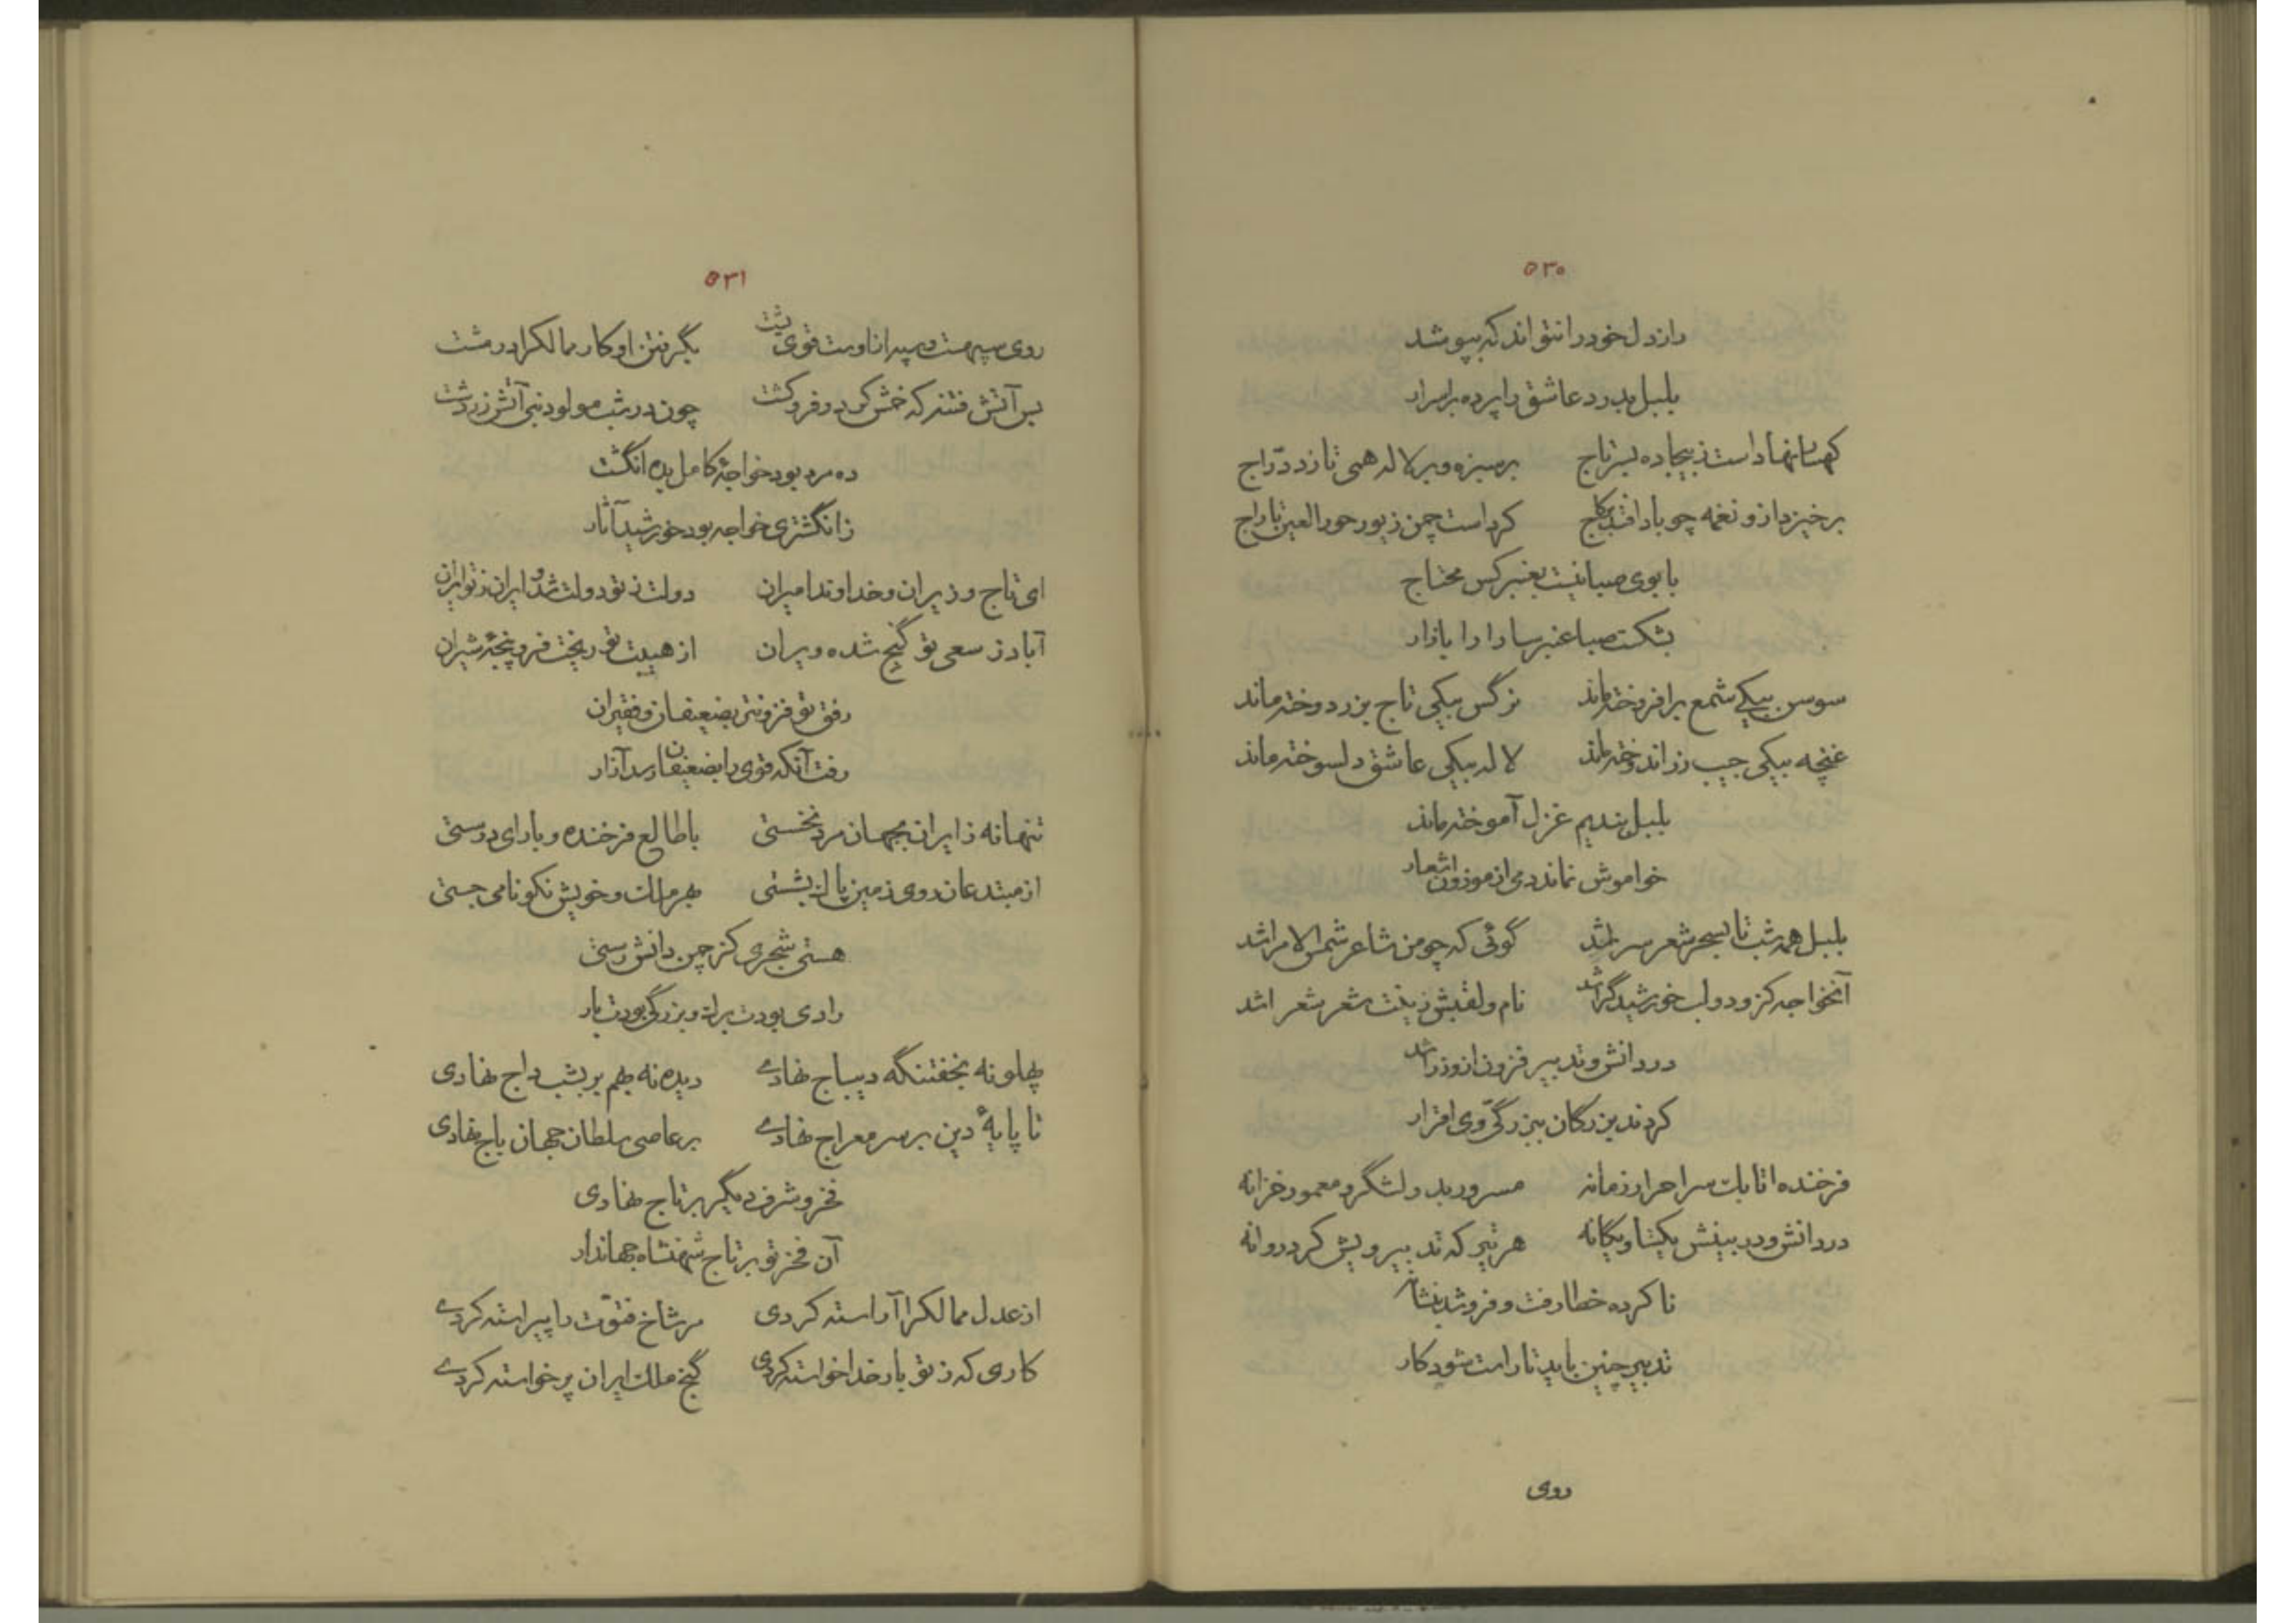 ۵۳۰
راز دل خود را نتواند که بپوشد
بلبل بدرد عاشق را پرده بر اسرار
کهسار نهاداست ز بیجاده بسر تاج برسبزه و بر لاله همی تازد درّاج
برخیزد ازو نغمه چو باد افتد بکاج کرداست چمن زیور حورالعین تاراج
با بوی صبا نیست بعنبر کس محتاج
بشکست صبا عنبر سارا را بازار
سوسن بیکی شمع برافروخته ماند نرگس بیکی تاج بزر دوخته ماند
غنچه بیکی جیب زر اندوخته ماند لاله بیکی عاشق دلسوخته ماند
بلبل بندیم غزل آموخته ماند
خواموش نماند دمی از موزون اشعار
بلبل همه شب تا بسحر شعر سرا شد گوئی که چو من شاعر شمس الامرا شد
آنخواجه کزو دولت خورشیدگرا شد نام و لقبش زینت شعر شعرا شد
در دانش و تدبیر فزون از وزرا شد
کردند بزرگان ببزرگیّ وی اقرار
فرخنده اتابک سر احرار زمانه مسرور بدو لشگر و معمور خزانه
در دانش و در بینش یکتا و یگانه هر تیر که تدبیر ویش کرد روانه
ناکرده خطا رفت و فرو شد بنشانه
تدبیر چنین باید تا راست شود کار
روی
۵۳۱
روی سپهست و سپه را ناوست قوی پشت بگرفتن او کار ممالک را در مشت
بس آتش فتنه که خمش کرد و فرو کشت چون در شب مولود نبی آتش زردشت
ده مرد بود خواجهٔ کامل بده انگشت
ز انگشتری خواجه بود خورشید آثار
ای تاج وزیران و خداوند امیران دولت ز تو دولت شد و ایران ز تو ایران
آباد ز سعی تو گنج شده ویران از هیبت تو ریخت فرو پنجهٔ شیران
رفق تو فزونتر بضعیفان و فقیران
رفت آنکه قوی را بضعیفان رسد آزار
تنها نه ز ایران بجهان مرد نخستی با طالع فرخنده و با رای درستی
از مبتدعان روی زمین پاک بشستی بهر ملک و خویش نکو نامی جستی
هستی شجری کز چمن دانش رستی
رادی بودت برگ و بزرگی بودت بار
پهلو نه بخفتنگه دیباج نهادی دیده نه بهم بر بشب داج نهادی
تا پایهٔ دین بر سر معراج نهادی بر عاصی سلطان جهان باج نهادی
فخر و شرف دیگر بر تاج نهادی
آن فخر تو بر تاج شهنشاه جهاندار
از عدل ممالک را آراسته کردی مر شاخ فتوّت را پیراسته کردی
کاری که ز تو بار خدا خواسته کردی گنج ملک ایران پر خواسته کردی